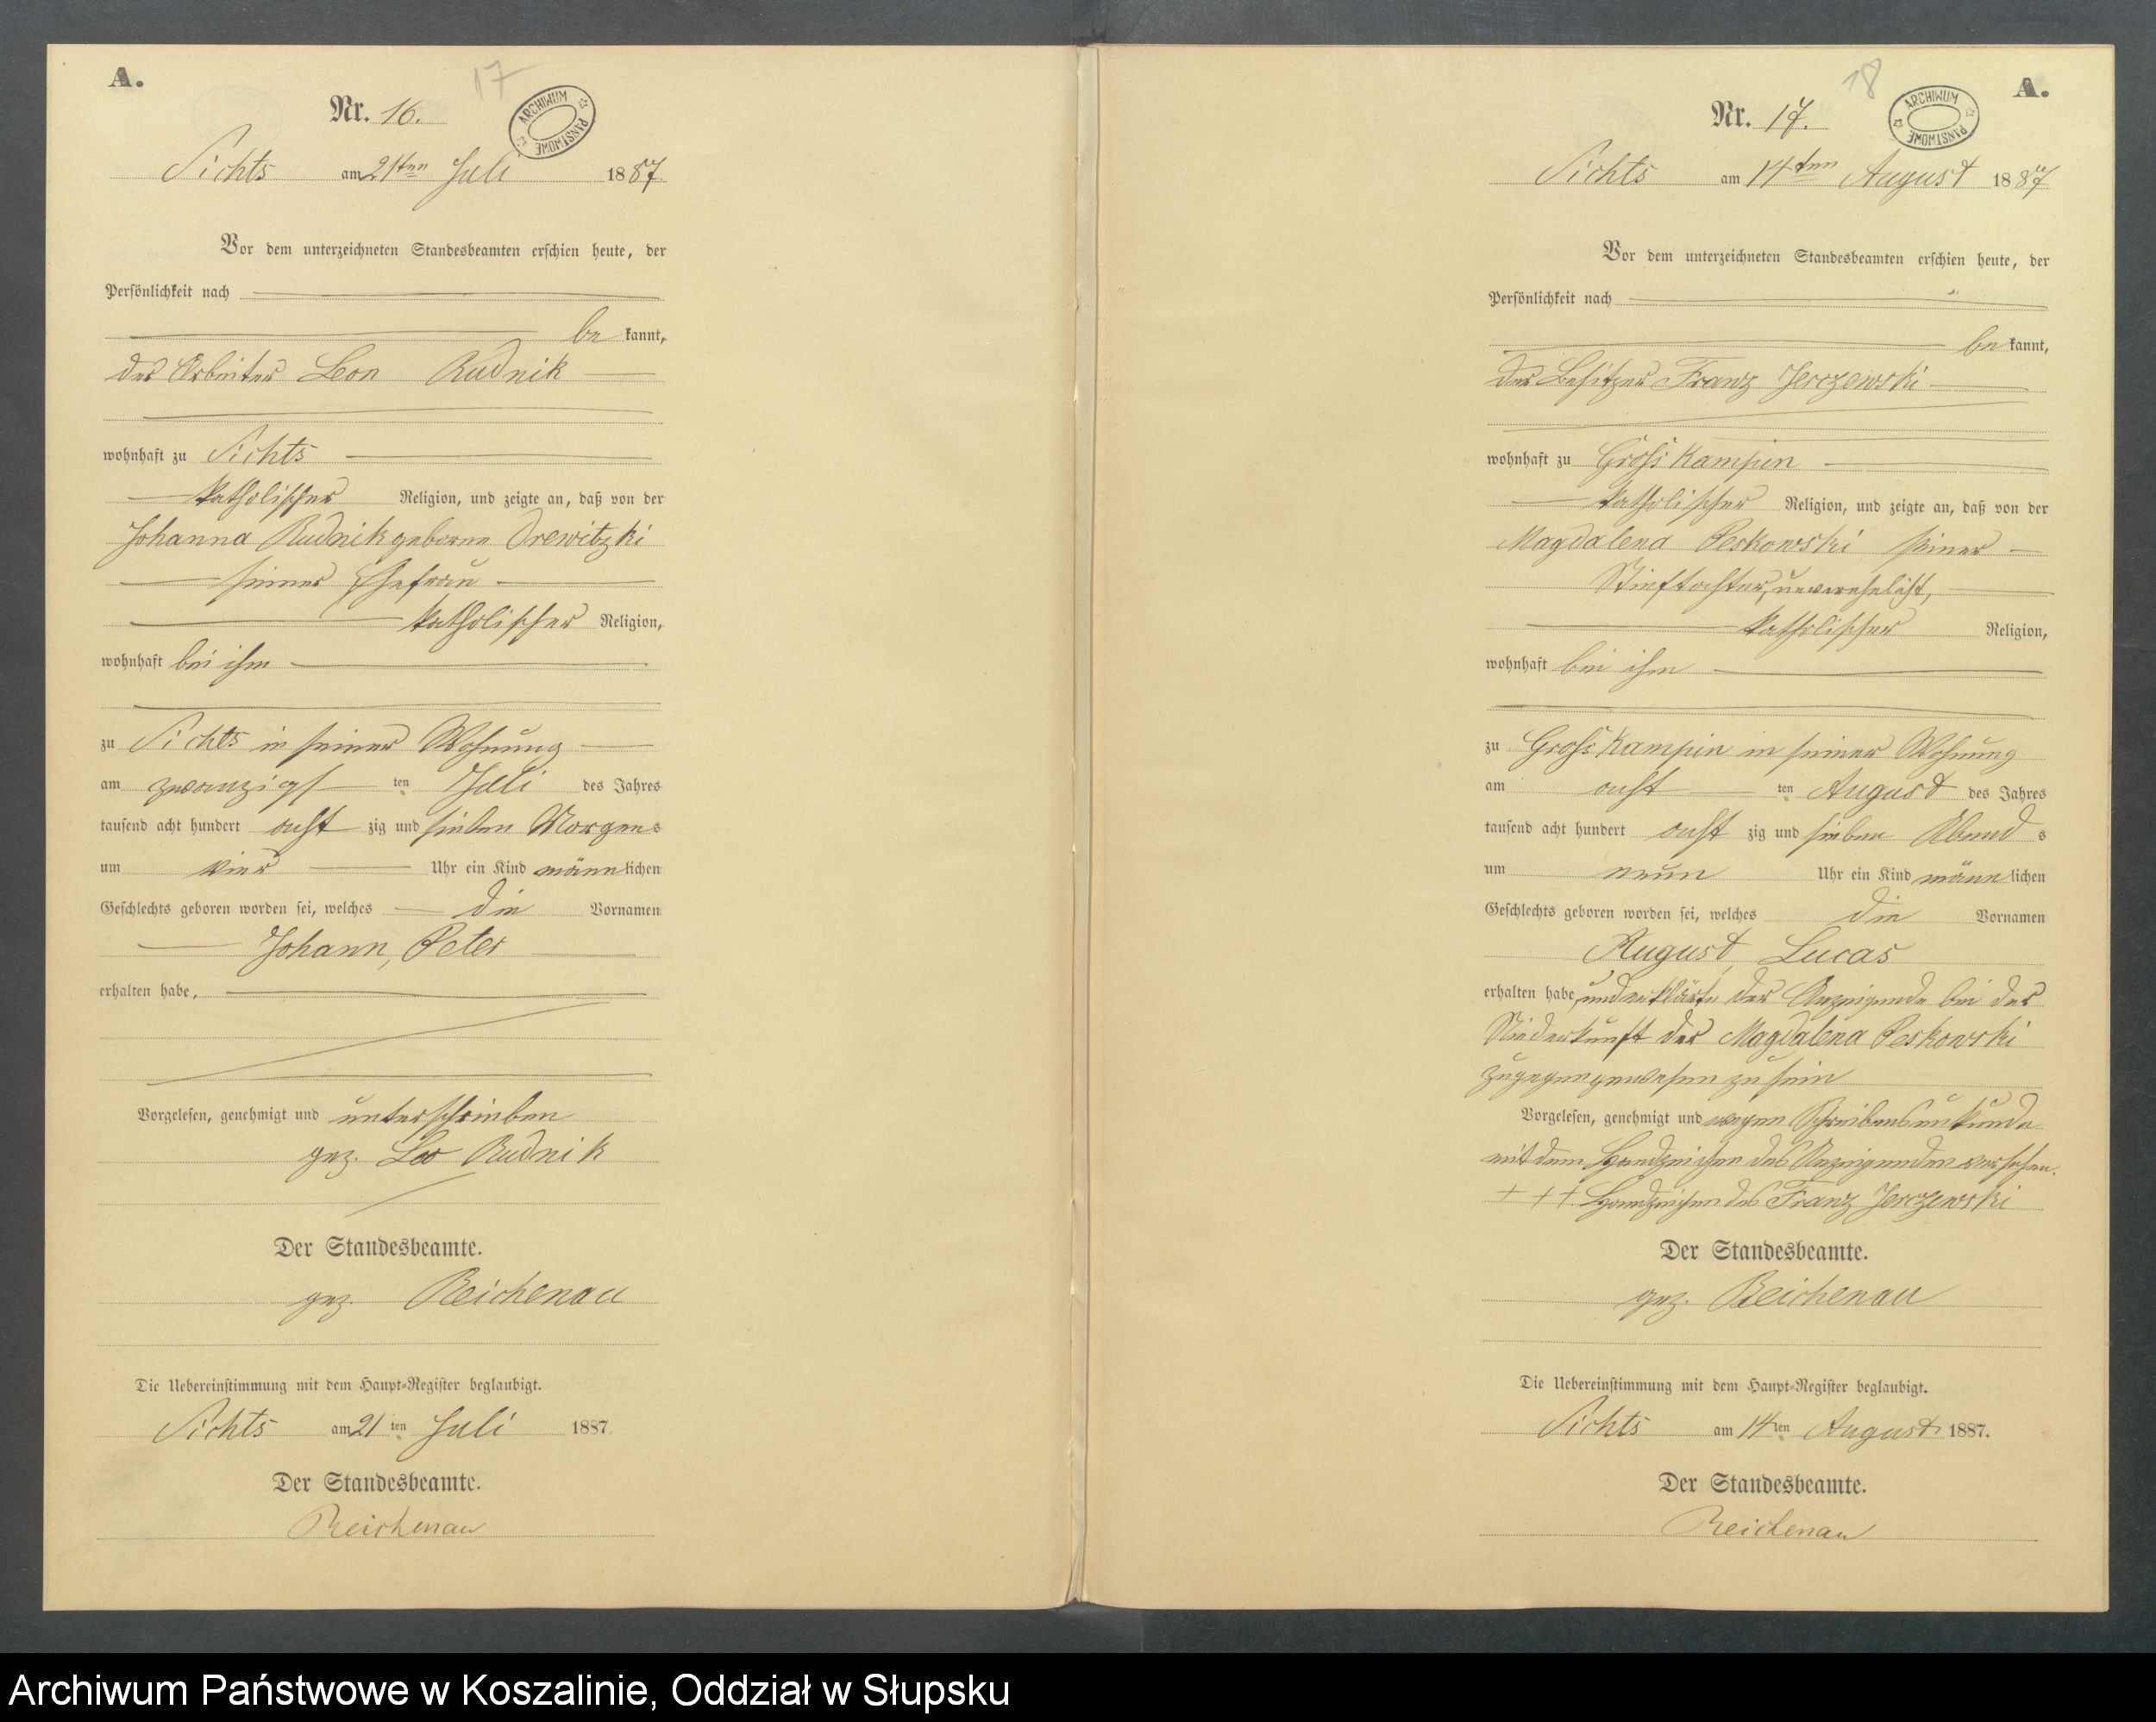 A.
17
Nr. 16.
ARCHIWUM PAŃSTWOWE
Sichts am 21ten Juli 1887
Vor dem unterzeichneten Standesbeamten erschien heute, der
Persönlichkeit nach
be kannt,
der Arbeiter Leon Rudnik
wohnhaft zu Sichts
katholischer Religion, und zeigte an, daß von der
Johanna Rudnik geborne Orewitzki
seiner Ehefrau
katholischer Religion,
wohnhaft bei ihm
zu Sichts in seiner Wohnung
am zwanzigst ten Juli des Jahres
tausend acht hundert acht zig und sieben Morgens
um vier Uhr ein Kind männlichen
Geschlechts geboren worden sei, welches die Vornamen
Johann, Peter
erhalten habe,
Vorgelesen, genehmigt und unterschrieben
gez. Leo Rudnik
Der Standesbeamte.
gez. Reichenau
Die Uebereinstimmung mit dem Haupt-Register beglaubigt.
Sichts am 21 ten Juli 1887.
Der Standesbeamte.
Reichenau
18
A.
Nr. 17.
ARCHIWUM PAŃSTWOWE
Sichts am 14ten August 1887
Vor dem unterzeichneten Standesbeamten erschien heute, der
Persönlichkeit nach
be kannt,
der Besitzer Franz Jerczewski
wohnhaft zu Groß Kampin
katholischer Religion, und zeigte an, daß von der
Magdalena Peskowski seiner
Stieftochter, unverehelicht,
katholischer Religion,
wohnhaft bei ihm
zu Groß Kampin in seiner Wohnung
am acht ten August des Jahres
tausend acht hundert acht zig und sieben Abend s
um neun Uhr ein Kind männlichen
Geschlechts geboren worden sei, welches die Vornamen
August, Lucas
erhalten habe, und erklärte der Anzeigende bei der
Niederkunft der Magdalena Peskowski
zugegen gewesen zu sein
Vorgelesen, genehmigt und wegen Schreibensunkunde
mit dem Handzeichen des Anzeigenden versehen.
+ + + Handzeichen des Franz Jerczewski
Der Standesbeamte.
gez. Reichenau
Die Uebereinstimmung mit dem Haupt-Register beglaubigt.
Sichts am 14 ten August 1887.
Der Standesbeamte.
Reichenau
Archiwum Państwowe w Koszalinie, Oddział w Słupsku